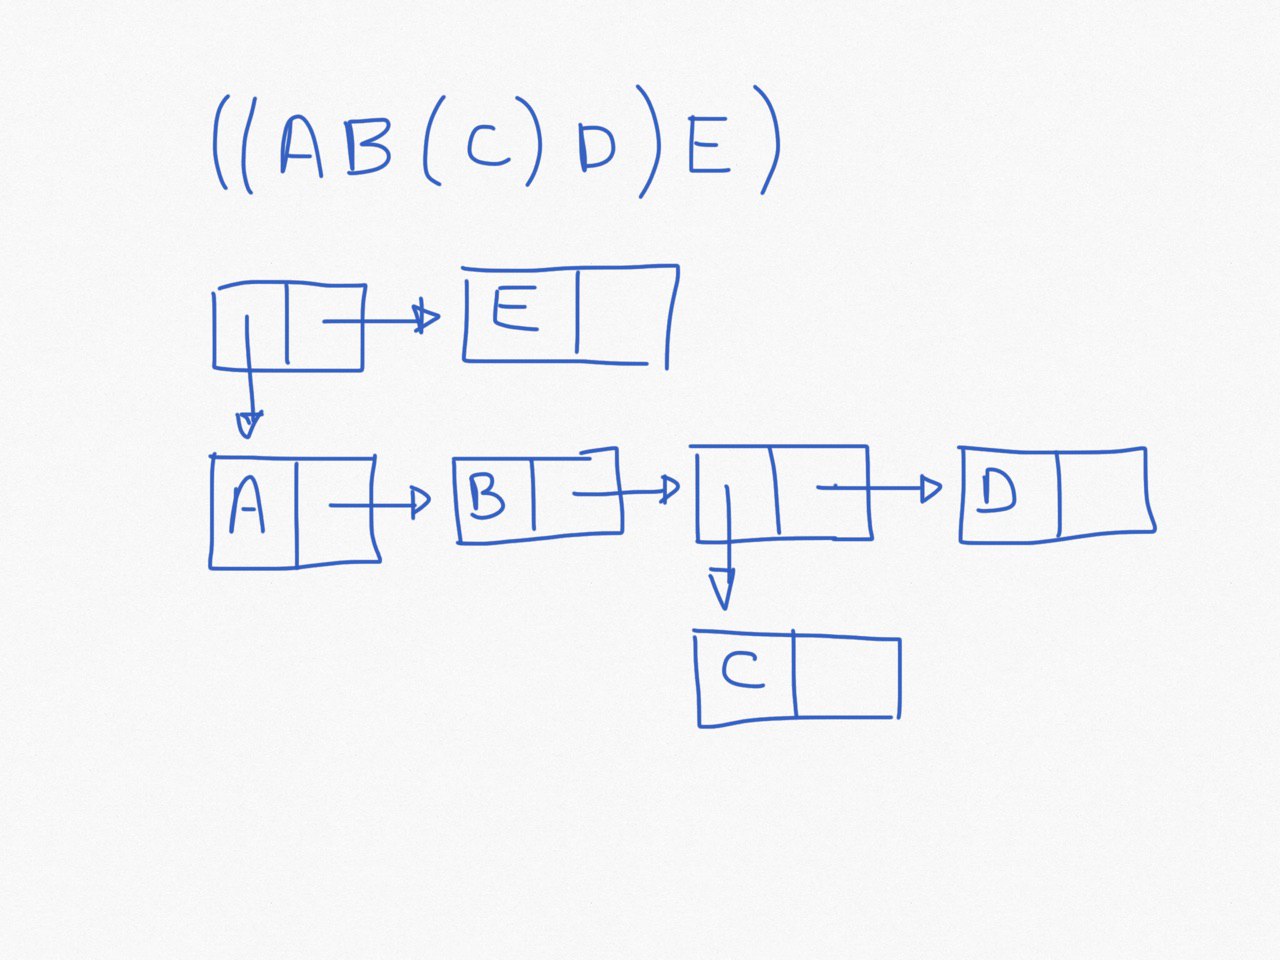 ((AB(C)D)E)
E
A B D
C